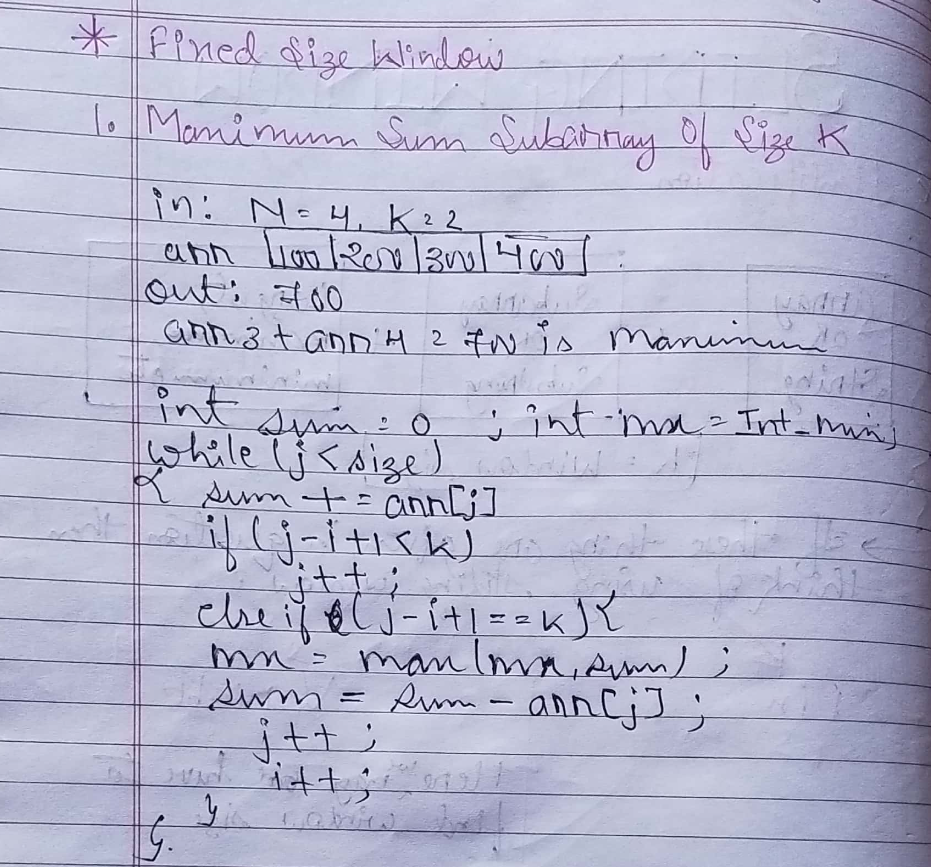 * Fixed Size Window
1. Maximum Sum Subarray Of Size K
in: N = 4, K = 2
arr |100|200|300|400|
out: 700
arr3 + arr4 = 700 is maximum
int sum = 0 ; int mx = Int_min;
while (j < size)
{ sum += arr[j]
if (j-i+1 < k)
j++;
else if (j-i+1 == k) {
mx = max(mx, sum) ;
sum = sum - arr[j] ;
j++ ;
i++ ;
}
}.